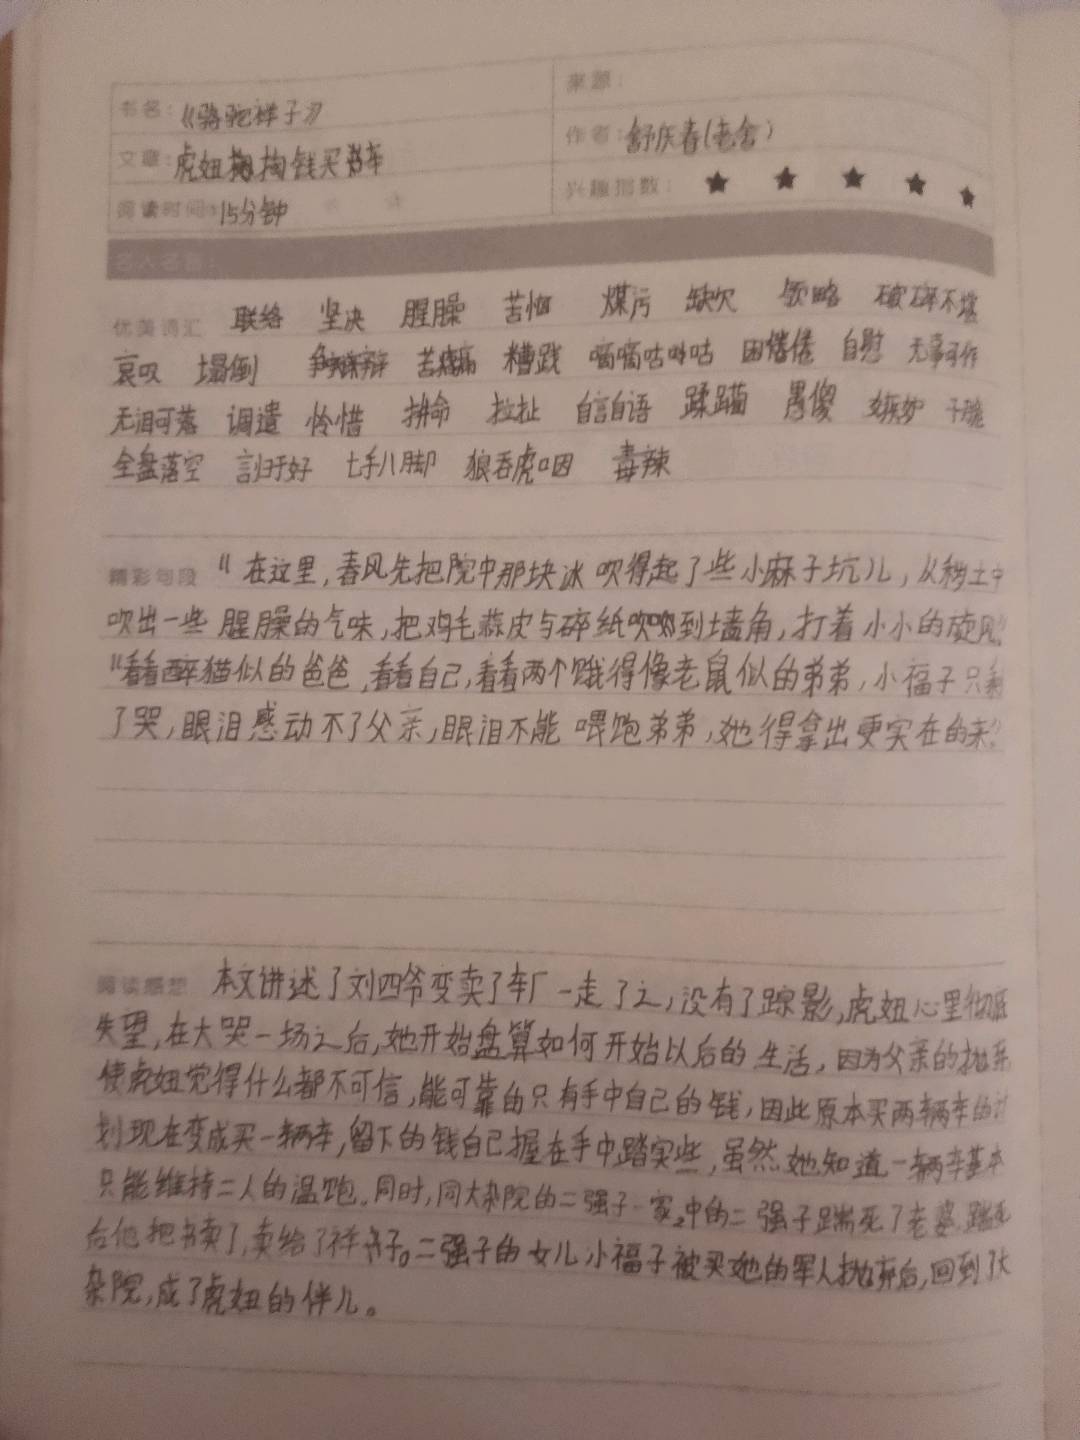 书名：《骆驼祥子》 来源：
文章：虎妞掏钱买车 作者：舒庆春(老舍)
阅读时间：15分钟 兴趣指数：★ ★ ★ ★ ★
名人名言：
优美词汇 联络 坚决 腥臊 苦恼 煤污 缺欠 领略 破碎不堪
哀叹 塌倒 糟践 嘀嘀咕咕 困倦 自慰 无事可作
无泪可落 调遣 怜惜 拼命 拉扯 自言自语 蹂躏 愚傻 嫉妒 干脆
全盘落空 言归于好 七手八脚 狼吞虎咽 毒辣
精彩句段 “在这里，春风先把院中那块冰吹得起了些小麻子坑儿，从秽土中
吹出一些腥臊的气味，把鸡毛蒜皮与碎纸吹到墙角，打着小小的旋风”
“看看醉猫似的爸爸，看看自己，看看两个饿得像老鼠似的弟弟，小福子只剩
了哭，眼泪感动不了父亲，眼泪不能喂饱弟弟，她得拿出更实在的来”
阅读感想 本文讲述了刘四爷变卖了车厂一走了之，没有了踪影，虎妞心里彻底
失望，在大哭一场之后，她开始盘算如何开始以后的生活，因为父亲的抛弃
使虎妞觉得什么都不可信，能可靠的只有手中自己的钱，因此原本买两辆车的计
划现在变成买一辆车，留下的钱自己握在手中踏实些，虽然她知道一辆车基本
只能维持二人的温饱。同时，同大杂院的二强子一家中的二强子踹死了老婆，踹死
后他把车卖了，卖给了祥子。二强子的女儿小福子被买她的军人抛弃后，回到了大
杂院，成了虎妞的伴儿。